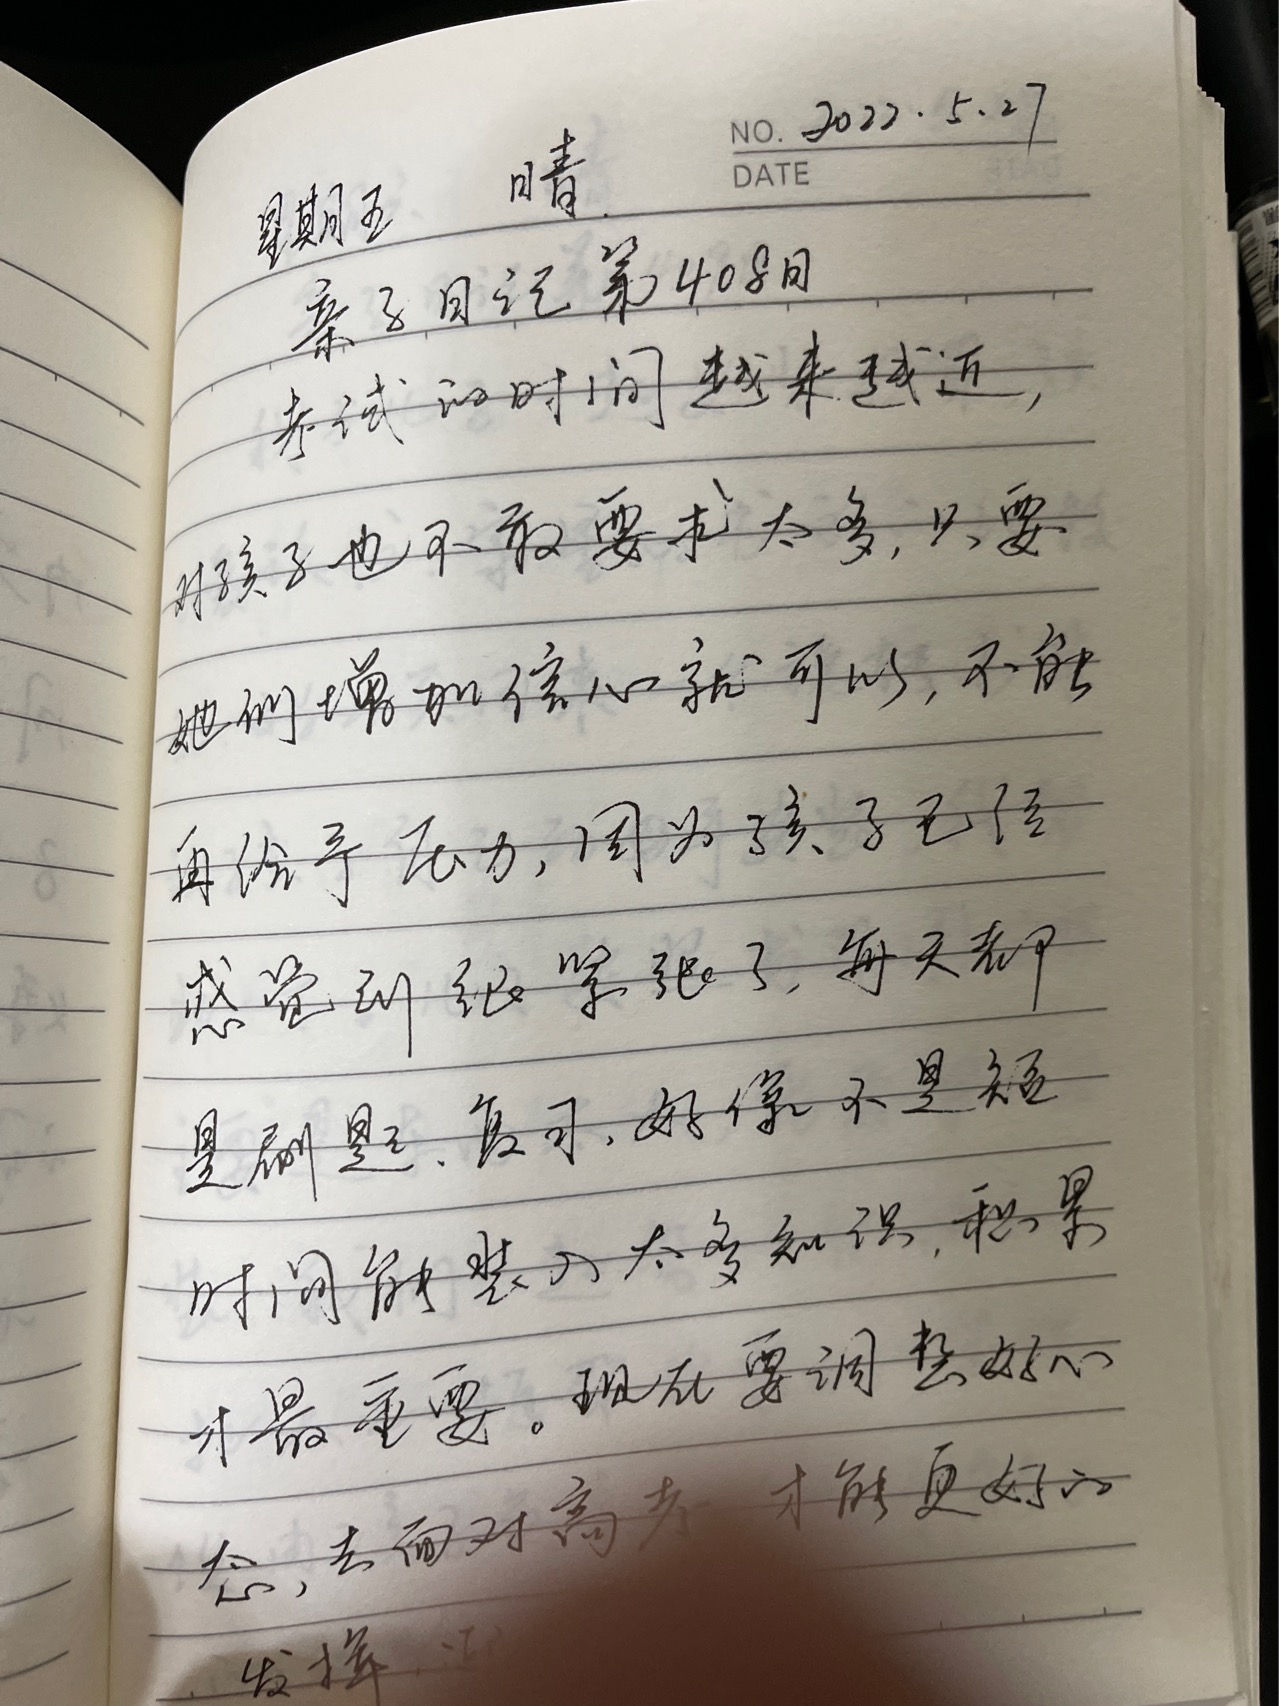 NO. 2022.5.27
DATE
星期五 晴.
亲子日记第408日
考试的时间越来越近,
对孩子也不敢要求太多,只要
她们增加信心就可以,不能
再给予压力,因为孩子已经
感觉到很紧张了,每天都
是刷题、复习,好像不是短
时间能装入太多知识,积累
才最重要。现在要调整好心
态,去面对高考 才能更好的
发挥